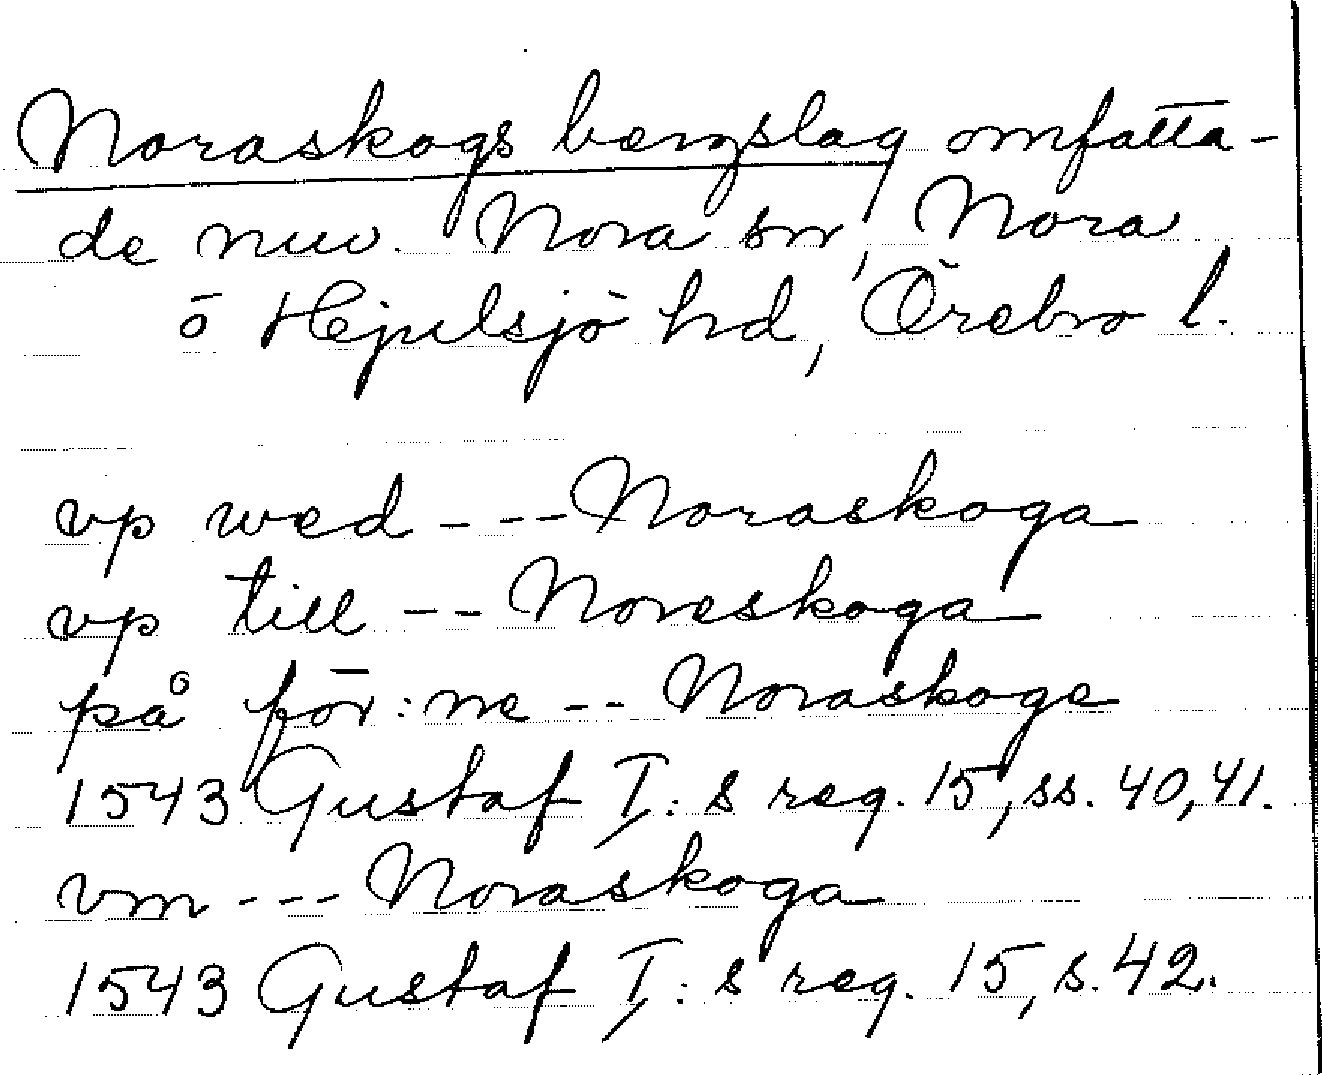 Noraskogs bergslag omfatta-
de nuv. Nora sn, Nora
o Hjulsjö hd, Örebro l.
vp wed --- Noraskoga
vp till -- Noreskoga
på för:ne -- Noraskoge
1543 Gustaf I:s reg. 15, ss. 40, 41.
vm --- Noraskoga
1543 Gustaf I:s reg. 15, s. 42.